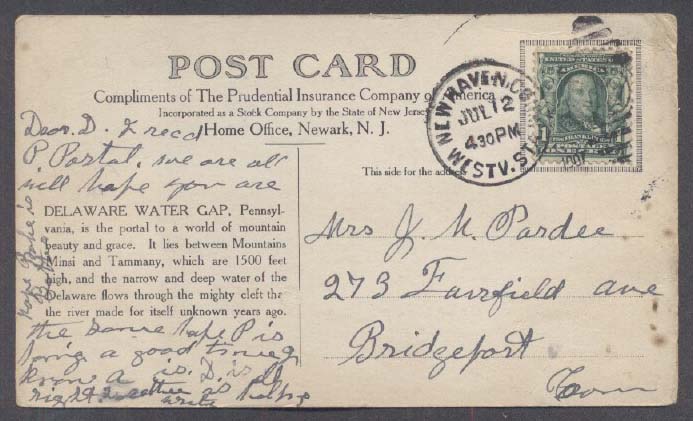 POST CARD
Compliments of The Prudential Insurance Company of America
Incorporated as a Stock Company by the State of New Jersey
Home Office, Newark, N. J.
This side for the address
Dear D. I recd
P Portal, we are all
well hope you are
DELAWARE WATER GAP, Pennsyl-
vania, is the portal to a world of mountain
beauty and grace. It lies between Mountains
Minsi and Tammany, which are 1500 feet
high, and the narrow and deep water of the
Delaware flows through the mighty cleft tha
the river made for itself unknown years ago.
the same hope P is
a good time
know a is. D. is
right
write
hope is
NEW HAVEN, CO
JUL 12
430 PM
WESTV. STA
1907
UNITED STATES OF
AMERICA
1
FRANKLIN
POSTAGE
Mrs J. M. Pardee
273 Fairfield ave
Bridgeport
Conn